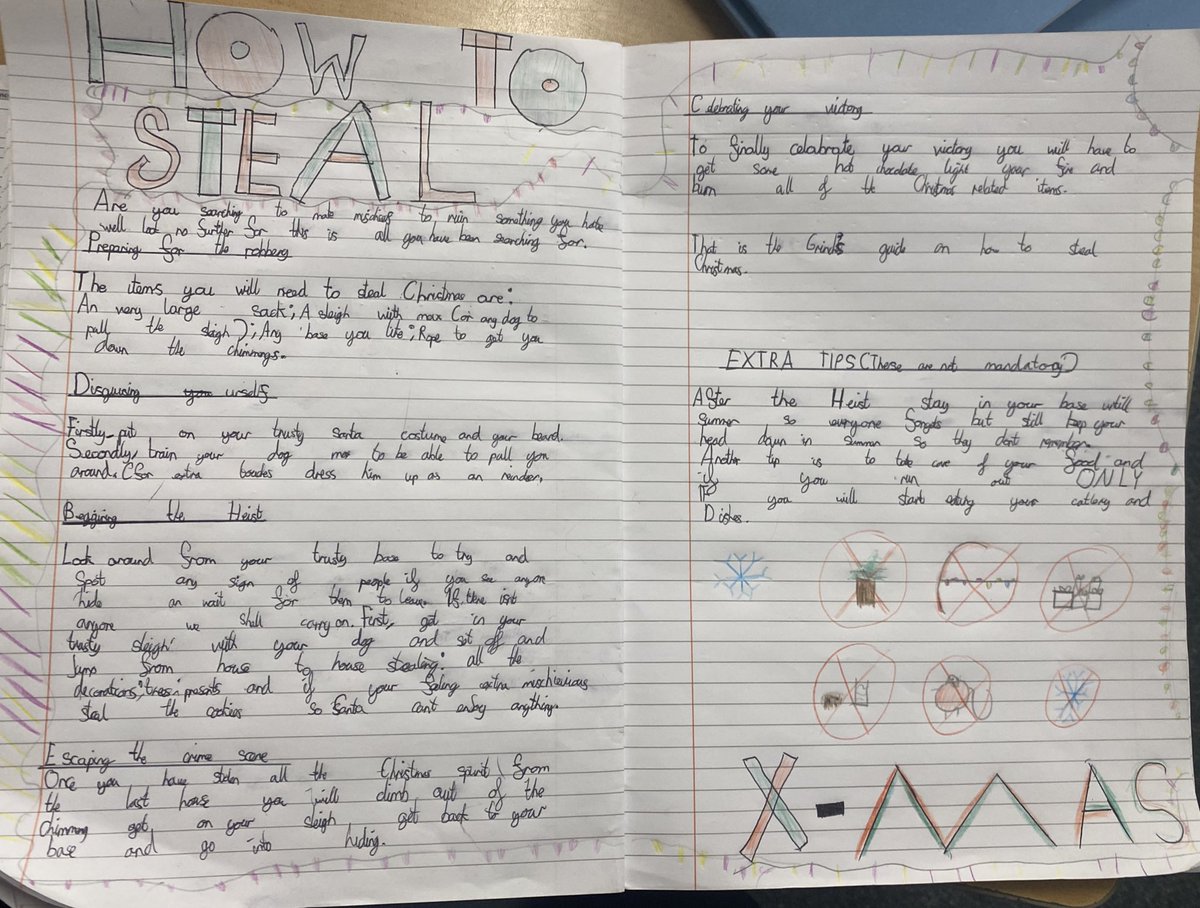 HOW TO
STEAL
Are you searching to make mischief to ruin something you hate
well look no further for this is all you have been searching for.
Preparing for the robbery
The items you will need to steal Christmas are:
An very large sack; A sleigh with max (or any dog to
pull the sleigh); Any base you like; Rope to get you
down the chimneys.
Disguising urself
Firstly, put on your trusty santa costume and your beard.
Secondly, train your dog max to be able to pull you
around. (for extra touches dress him up as an reindeer.
the Heist
Look around from your trusty base to try and
spot any sign of people if you see anyone
hide an wait for them to leave. If there isnt
anyone we shall carry on. First, get in your
trusty sleigh with your dog and set off and
Jump from house to house stealing: all the
decorations; trees; presents and if your feling extra mischievious
steal the cookies so Santa can't enjoy anything.
Escaping the crime scene
Once you have stolen all the Christmas spirit from
the last house you will climb out of the
chimney get on your sleigh get back to your
base and go into hiding.
Celebrating your victory
To finally celabrate your victory you will have to
get some hot chocolate light your fire and
burn all of the Christmas related items.
That is the Grinch's guide on how to steal
Christmas.
EXTRA TIPS (These are not mandatory)
After the Heist stay in your base untill
summer so everyone forgets but still keep your
head down in summer so they dont remember.
Another tip is to take care of your food and
if you run out ONLY
IF you will start eating your cutlery and
Dishes.
X-MAS